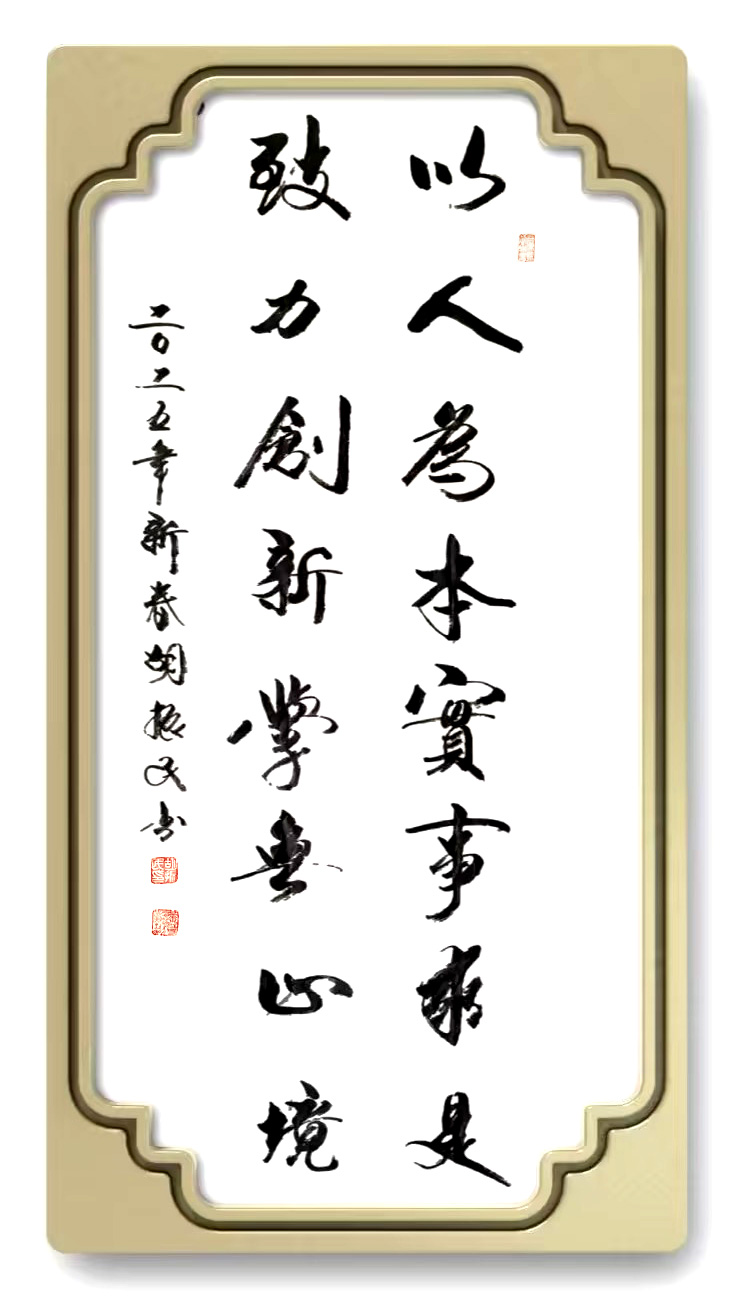 以人為本實事求是
致力創新學無止境
二〇二五年新春胡振民书